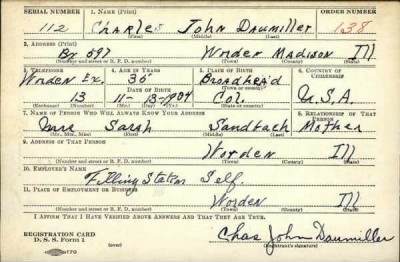 SERIAL NUMBER 1. NAME (Print) ORDER NUMBER
112 Charles John Daumiller 138
(First) (Middle) (Last)
2. ADDRESS (Print)
Bx 597 Worden Madison Ill
(Number and street or R. F. D. number) (Town) (County) (State)
3. TELEPHONE 4. AGE IN YEARS 5. PLACE OF BIRTH 6. COUNTRY OF CITIZENSHIP
Worden Ex. 36 Broadhead
DATE OF BIRTH (Town or county)
13 11-13-1904 Col. U.S.A.
(Exchange) (Number) (Mo.) (Day) (Yr.) (State or country)
7. NAME OF PERSON WHO WILL ALWAYS KNOW YOUR ADDRESS 8. RELATIONSHIP OF THAT PERSON
Mrs Sarah Sandbach Mother
(Mr., Mrs., Miss) (First) (Middle) (Last)
9. ADDRESS OF THAT PERSON
Worden Ill
(Number and street or R. F. D. number) (Town) (County) (State)
10. EMPLOYER'S NAME
Filling Station Self.
11. PLACE OF EMPLOYMENT OR BUSINESS
Worden Ill
(Number and street or R. F. D. number) (Town) (County) (State)
I AFFIRM THAT I HAVE VERIFIED ABOVE ANSWERS AND THAT THEY ARE TRUE.
Chas John Daumiller
REGISTRATION CARD
D. S. S. Form 1 (over) (Registrant's signature)